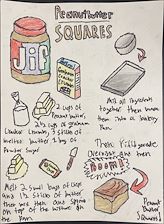 Peanut butter
SQUARES
JHF
2 cups of
Peanut butter,
2 1/2 cups of graham
Cracker Crumbs, 3 sticks of
melted butter, 1 bag of
Powder Sugar
Mix all ingredients
together then move
them into a baking
Pan
Then Refrigerate
Overnight and then
BOOM!
Melt 2 small bags of chips
and 1/2 sticks of butter
then mix them and Spread
on top of the mixture in
the
Peanut
Butter
Squares